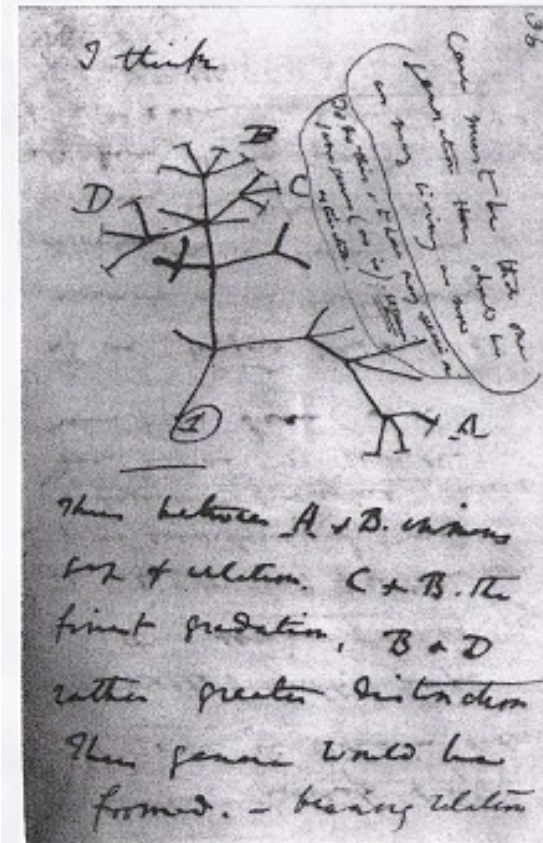 I think
36
Case must be that one
generation then should be
as many living as now
To do this & to have many species in
same genus (as is). requires
extinction.
B
D
C
A
1
Thus between A & B. immens
gap of relation. C & B. the
finest gradation, B & D
rather greater distinction
Thus genera would be
formed. — bearing relation